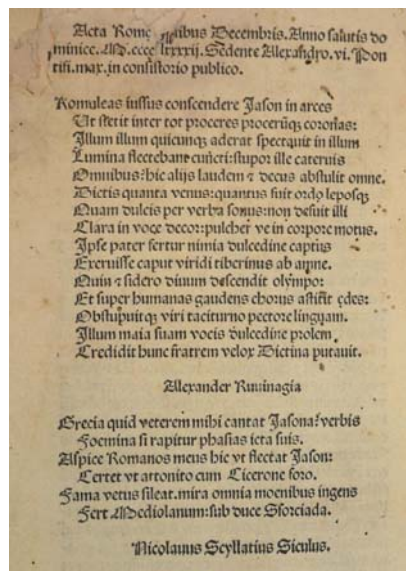 Acta Rome Idibus Decembris. Anno salutis do
minice. M.cccc lxxxxij. Sedente Alexandro. vi. Pon
tifi. max. in consistorio publico.
Romuleas iussus conscendere Jason in arces
Ut stetit inter tot proceres procerūqꝫ coronas:
Illum illum quicunqꝫ aderat spectquit in illum
Lumina flectebant cuncti: stupor ille cateruis
Omnibus: hic alijs laudem ⁊ decus abstulit omne.
Dictis quanta venus: quantus fuit ordo leposqꝫ
Quam dulcis per verba sonus: non desuit illi
Clara in voce decor: pulcher ve in corpore motus.
Ipse pater fertur nimia dulcedine captus
Exeruisse caput viridi tiberinus ab amne.
Quin ⁊ sidero diuum descendit olympo:
Et super humanas gaudens chorus astitit ędes:
Obstupuitqꝫ viri taciturno pectore linguam.
Illum maia suam vocis dulcedine prolem
Credidit hunc fratrem velox Dictina putauit.
Alexander Ruuinagia
Grecia quid veterem mihi cantat Jasona? verbis
Foemina si rapitur phasias icta suis.
Aspice Romanos meus hic vt flectat Jason:
Certet vt attonito cum Cicerone foro.
Fama vetus sileat. mira omnia moenibus ingens
Fert Mediolanum: sub duce Sforciada.
Nicolauus Scyllatius Siculus.